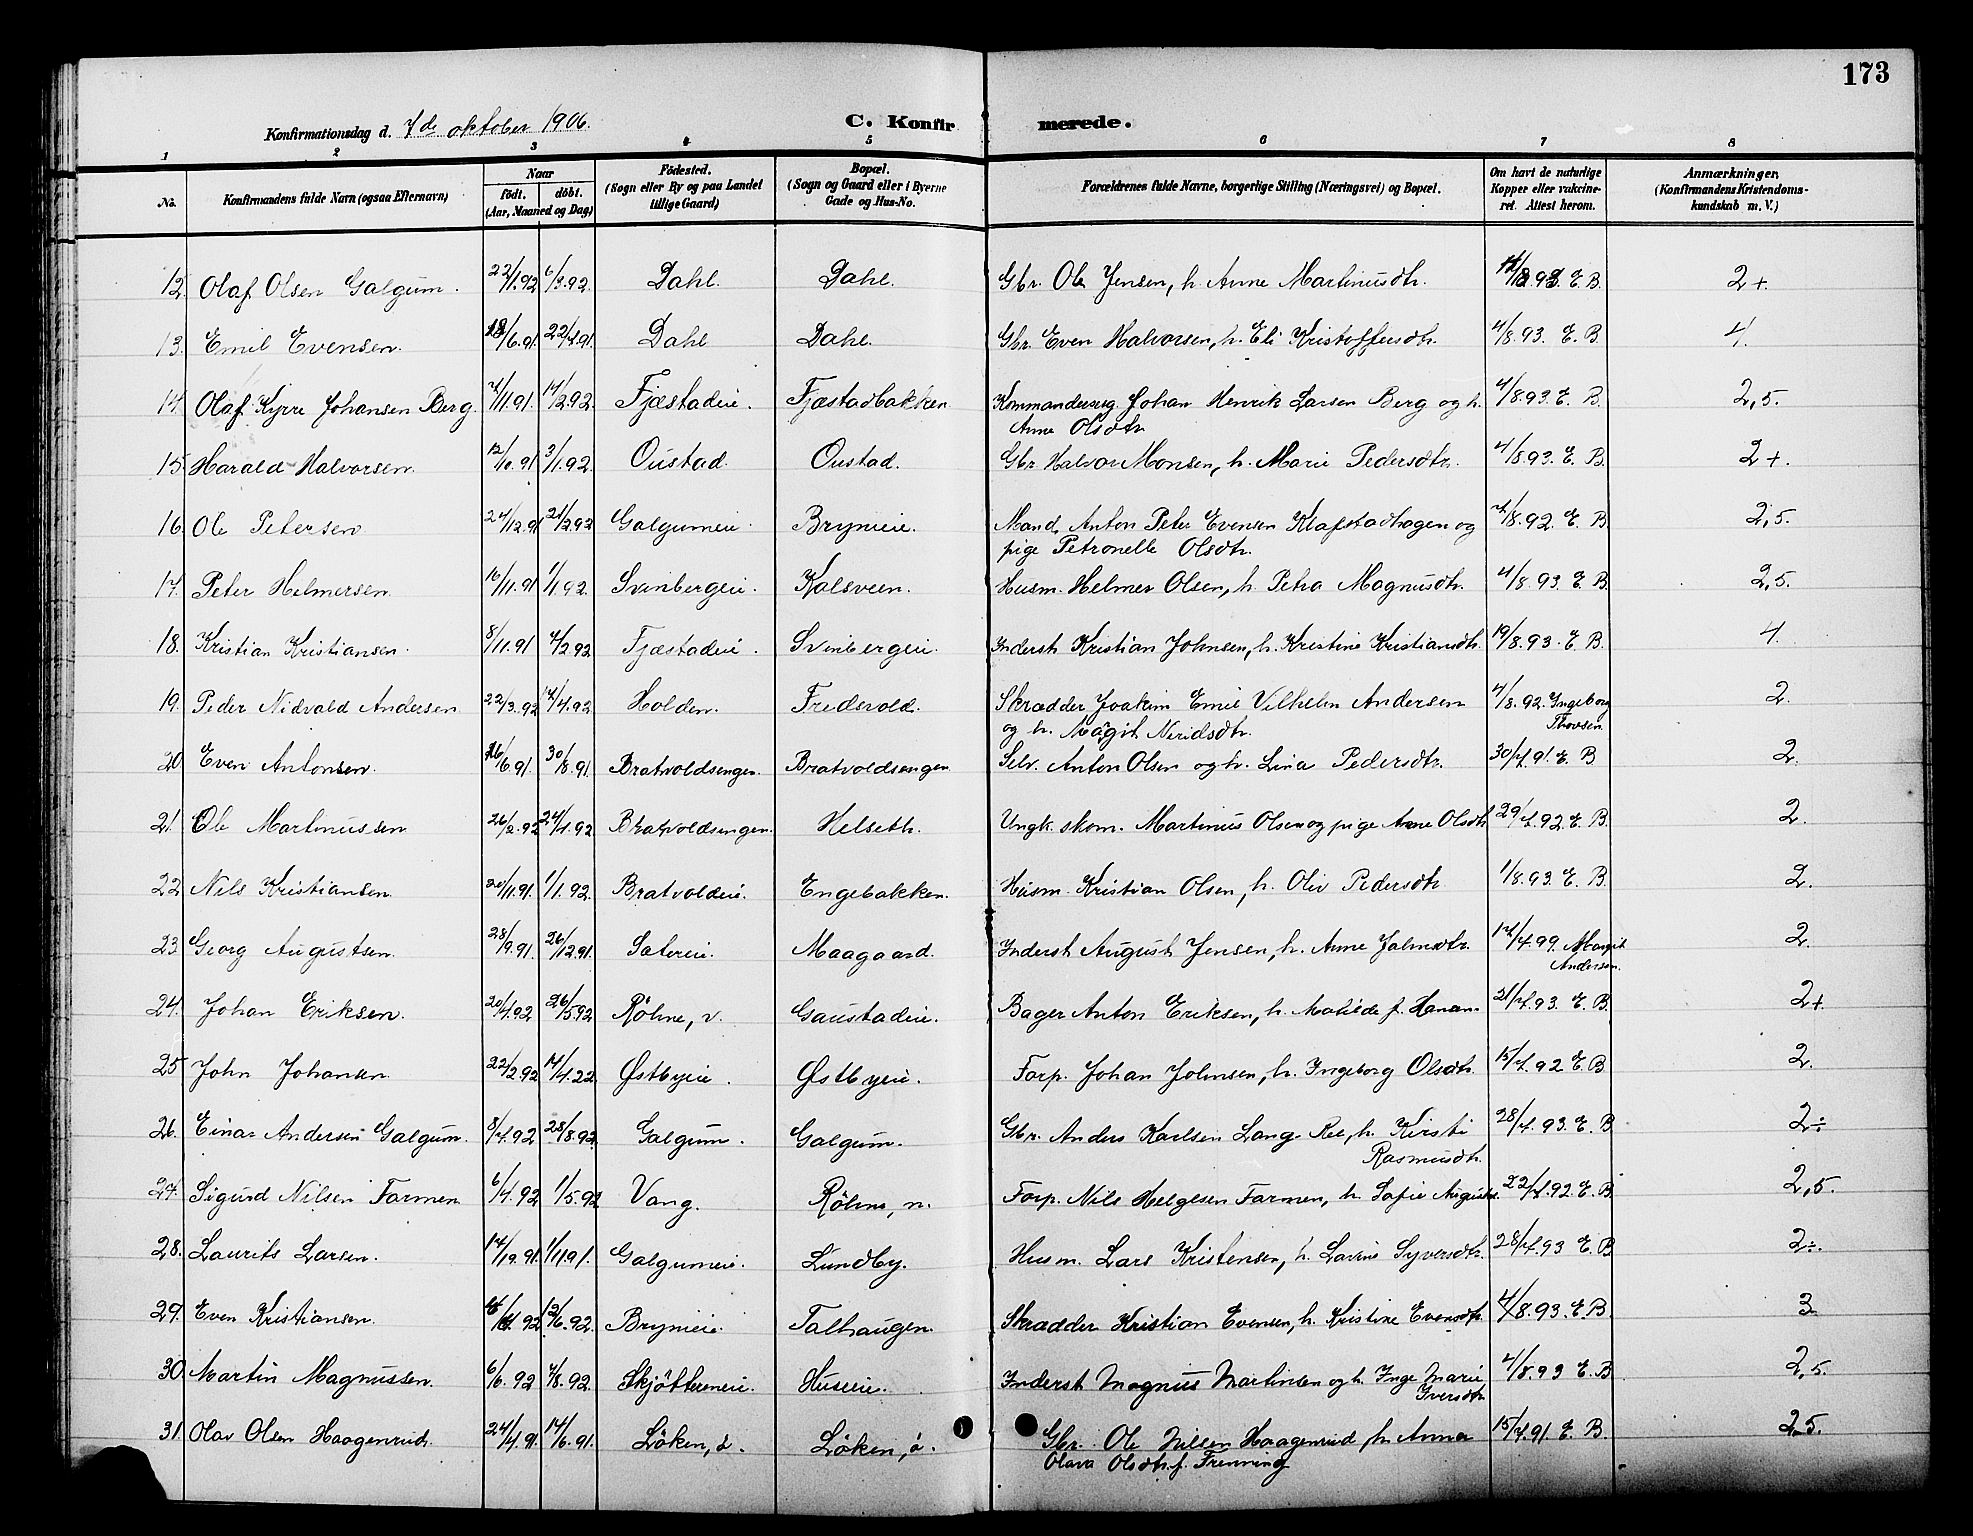 173
Konfirmationsdag d. 7de oktober 1906.
C. Konfirmerede.
1 2 3 4 5 6 7 8
No. Konfirmandens fulde Navn (ogsaa Efternavn) Naar født. døbt. (Aar, Maaned og Dag) Födested. (Sogn eller By og paa Landet tillige Gaard) Bopæl. (Sogn og Gaard eller i Byerne Gade og Hus-No. Forældrenes fulde Navne, borgerlige Stilling (Næringsvei) og Bopæl. Om havt de naturlige Kopper eller vaccineret. Attest herom. Anmærkninger, (Konfirmandens Kristendomskundskab m. V.)
12. Olaf Olsen Galgum. 22/1.92 6/3.92. Dahl. Dahl. Gbr. Ole Jensen, h. Anne Martinusdtr. E.B. 2+.
13. Emil Evensen. 18/6.91. Dahl Dahl. Gbr. Even Halvorsen, h. Eli Kristoffersdtr. 4/8.93. E.B. 4.
14. Olaf Kyrre Johansen Berg 14/2.92. Fjæstadeie. Fjæstadbakken Johan Henrik Larsen Berg og h. 4/8.93. E.B. 2,5.
Anne Olsdtr.
15 Harald Halvorsen. 12/10.91 3/1.92. Oustad. Oustad. Gbr. Halvor Monsen, h. Marie Pedersdtr. 4/8.93. E.B. 2+.
16. Ole Petersen 24/12.91 21/2.92 Galgumeie. Brynieie. Anton Peter Evensen Klafstadhagen og /8.92. E.B. 2,5.
pige Petronelle Olsdtr.
17. Peter Helmersen 16/11.91 1/1.92. Svinbergeie. Kalsveen. Husm. Helmer Olsen, h. Petra Magnusdtr. 4/8.93. E.B. 2,5.
18. Kristian Kristiansen. 8/11.91 7/2.92 Fjæstadeie. Svinbergeie. Inderst Kristian Johnsen, h. Kristine Kristiansdtr. 19/8.93. E.B. 4.
19. Peder Nidvald Andersen 22/3.92 17/4.92. Holden. Fredvold. Skrædder Joakim Emil Vilhelm Andersen 4/8.92. Ingeborg Thovsen. 2.
og h. Magit Neridsdtr.
20 Even Antonsen. 16/6.91 30/8.91. Bratvoldsengen. Bratvoldsengen. Selv. Anton Olsen og h. Lina Pedersdtr. 30/7.91. E.B. 2.
21. Ole Martinussen 26/2.92 24/4.92 Bratvoldsengen. Helseth. Ungk. skom. Martinus Olsen og pige Anne Olsdtr. 29/7.92. E.B. 2.
22 Nils Kristiansen 20/11.91. 1/1.92. Bratvoldeie. Engebakken. Husm. Kristian Olsen, h. Oliv Pedersdtr. 1/8.93. E.B. 2.
23. Georg Augustsen. 28/9.91. 26/12.91. Satereie. Maagaard. Inderst August Jensen, h. Anne Johnsdtr. Margit Andersen. 2.
24. Johan Eriksen. 20/4.92. 26/5.92 Röhne, v. Gaustadeie. Bager Anton Eriksen, h. Matilde f. Hanan- 21/7.93. E.B. 2+
25 John Johansen 22/2.92 14/4.22. Østbyeie. Østbyeie. Forp. Johan Johnsen, h. Ingeborg Olsdtr. 15/7.92 E.B 2.
26. Einar Andersen Galgum. 8/7.92 28/8.92. Galgum. Galgum. Gbr. Anders Karlsen Lang-Ree, h. Kirsti 28/7.93. E.B 2÷
Rasmusdtr.
27. Sigurd Nilsen Farmen 6/4.92 1/5.92 Vang. Röhne, n. Forp. Nils Helgesen Farmen, h. Sofie 22/7.92. E.B. 2,5.
28. Laurits Larsen. 1/11.91. Galgumeie. Lundby. Husm. Lars Kristensen, h. Lavine Syversdtr. 28/7.93 E.B 2÷.
29. Even Kristiansen. 12/6.92. Brynieie. Talhaugen. Skrædder Kristian Evensen, h. Kristine Evensdtr. 4/8.93. E.B. 3
30. Martin Magnussen. 6/6.92 7/8.92. Skjöttereneie. Huseie. Inderst Magnus Martinsen og h. Inge Marie 4/8.93 E.B 2,5.
Iversdtr.
31. Olav Olsen Haagenrud. 24/4.91 14/6.91. Löken, ö. Löken, ö. Gbr. Ole Nilsen Haagenrud, h. Anna 15/7.91. E.B. 2,5.
Olava Olsdtr. f. Frenning